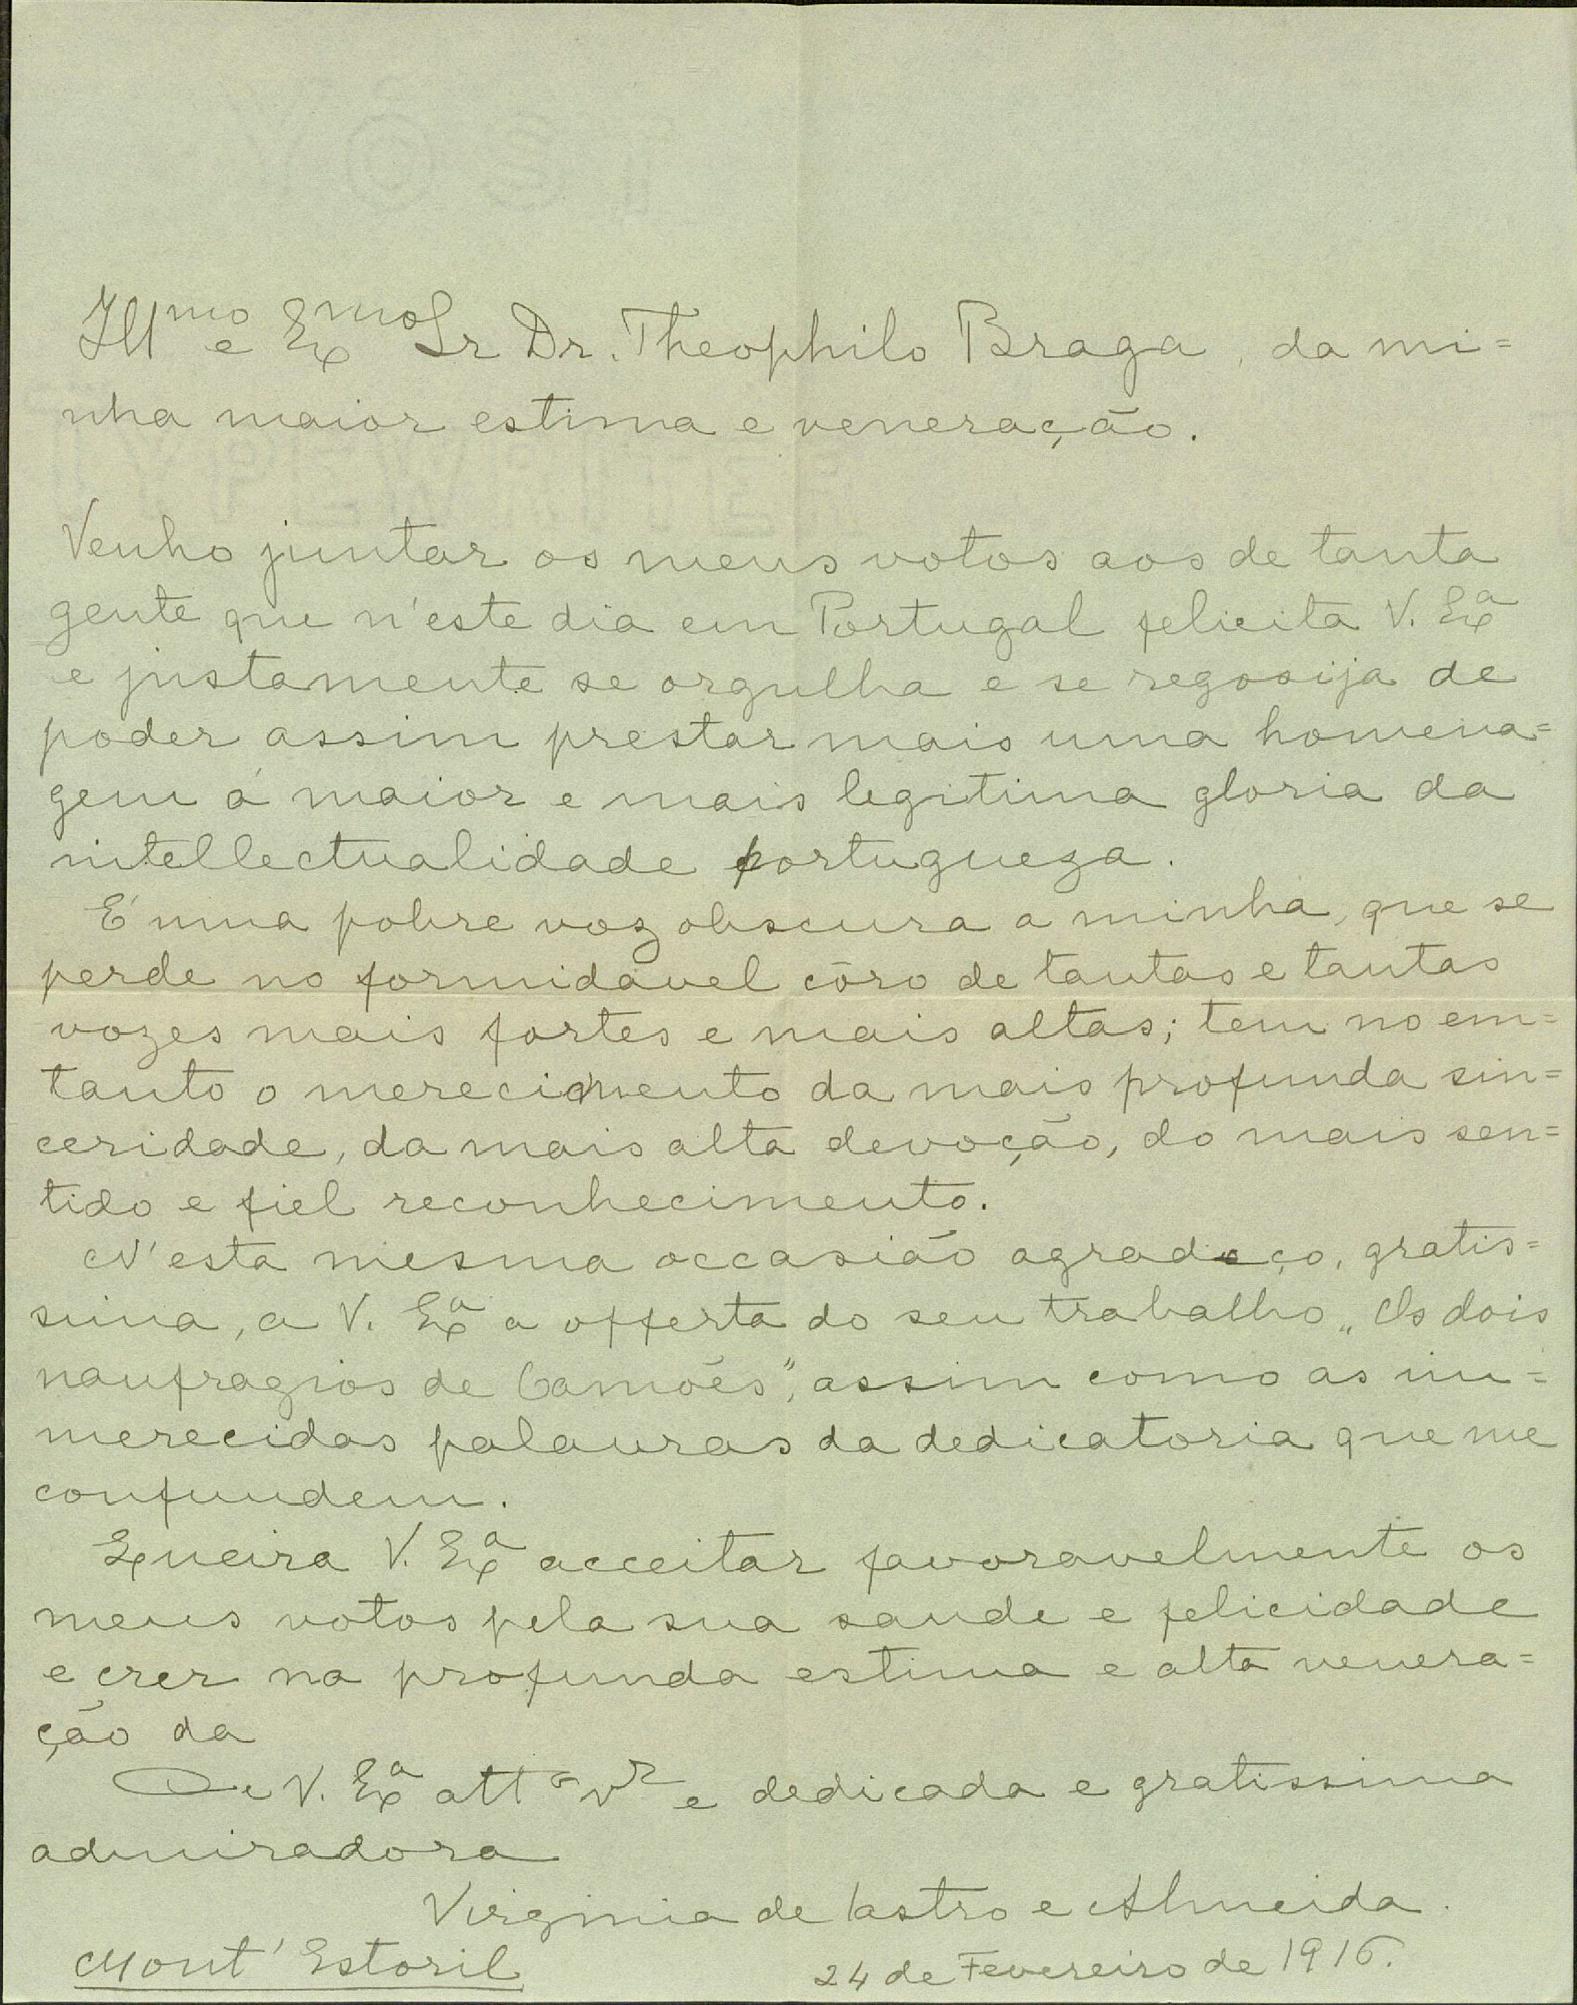 Illmo e Exmo Sr Dr. Theophilo Braga, da mi=
nha maior estima e veneração.
Venho juntar os meus votos aos de tanta
gente que n'este dia em Portugal felicita V. Exa
e justamente se orgulha e se regosija de
poder assim prestar mais uma homena=
gem á maior e mais legitima gloria da
intellectualidade portugueza.
É uma pobre voz obscura a minha, que se
perde no formidavel côro de tantas e tantas
vozes mais fortes e mais altas; tem no em=
tanto o merecimento da mais profunda sin=
ceridade, da mais alta devoção, do mais sen=
tido e fiel reconhecimento.
N'esta mesma occasião agradeço, gratis=
sima, a V. Exa a offerta do seu trabalho „Os dois
naufragios de Camões", assim como as im=
merecidas palavras da dedicatoria que me
confundem.
Queira V. Exa acceitar favoravelmente os
meus votos pela sua saude e felicidade
e crer na profunda estima e alta venera=
ção da
De V. Exa atta vr e dedicada e gratissima
admiradora
Virginia de Castro e Almeida.
Mont' Estoril
24 de Fevereiro de 1916.